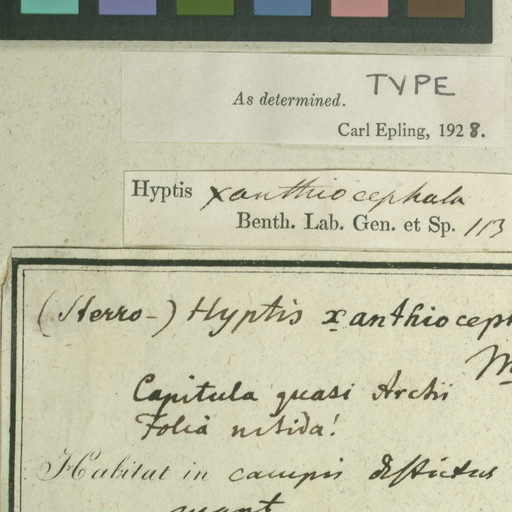 TYPE
As determined.
Carl Epling, 1928.
Hyptis xanthiocephala
Benth. Lab. Gen. et Sp. 113
(Herro-) Hyptis xanthioceph
Capitula quasi Arctii
Folia nitida!
Habitat in campis